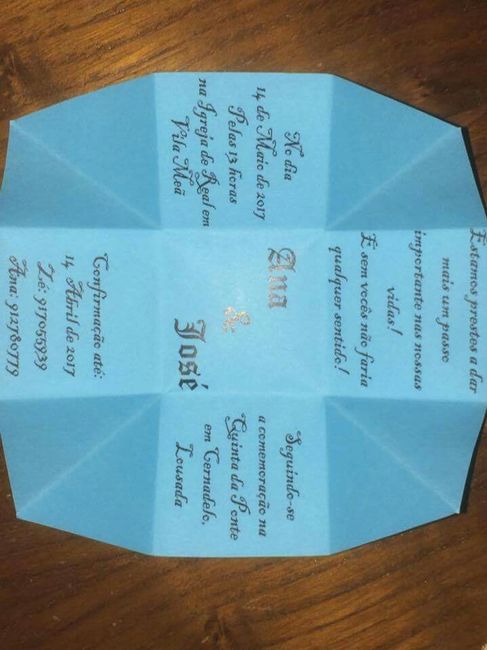 Estamos prestes a dar
mais um passo
importante nas nossas
vidas!
E sem vocês não faria
qualquer sentido!
No dia
14 de Maio de 2017
Pelas 13 horas
na Igreja de Real em
Vila Meã
Ana
&
José
Seguindo-se
a comemoração na
Quinta da Ponte
em Cernadelo,
Lousada
Confirmação até:
14 Abril de 2017
Zé: 917055939
Ana: 912780779